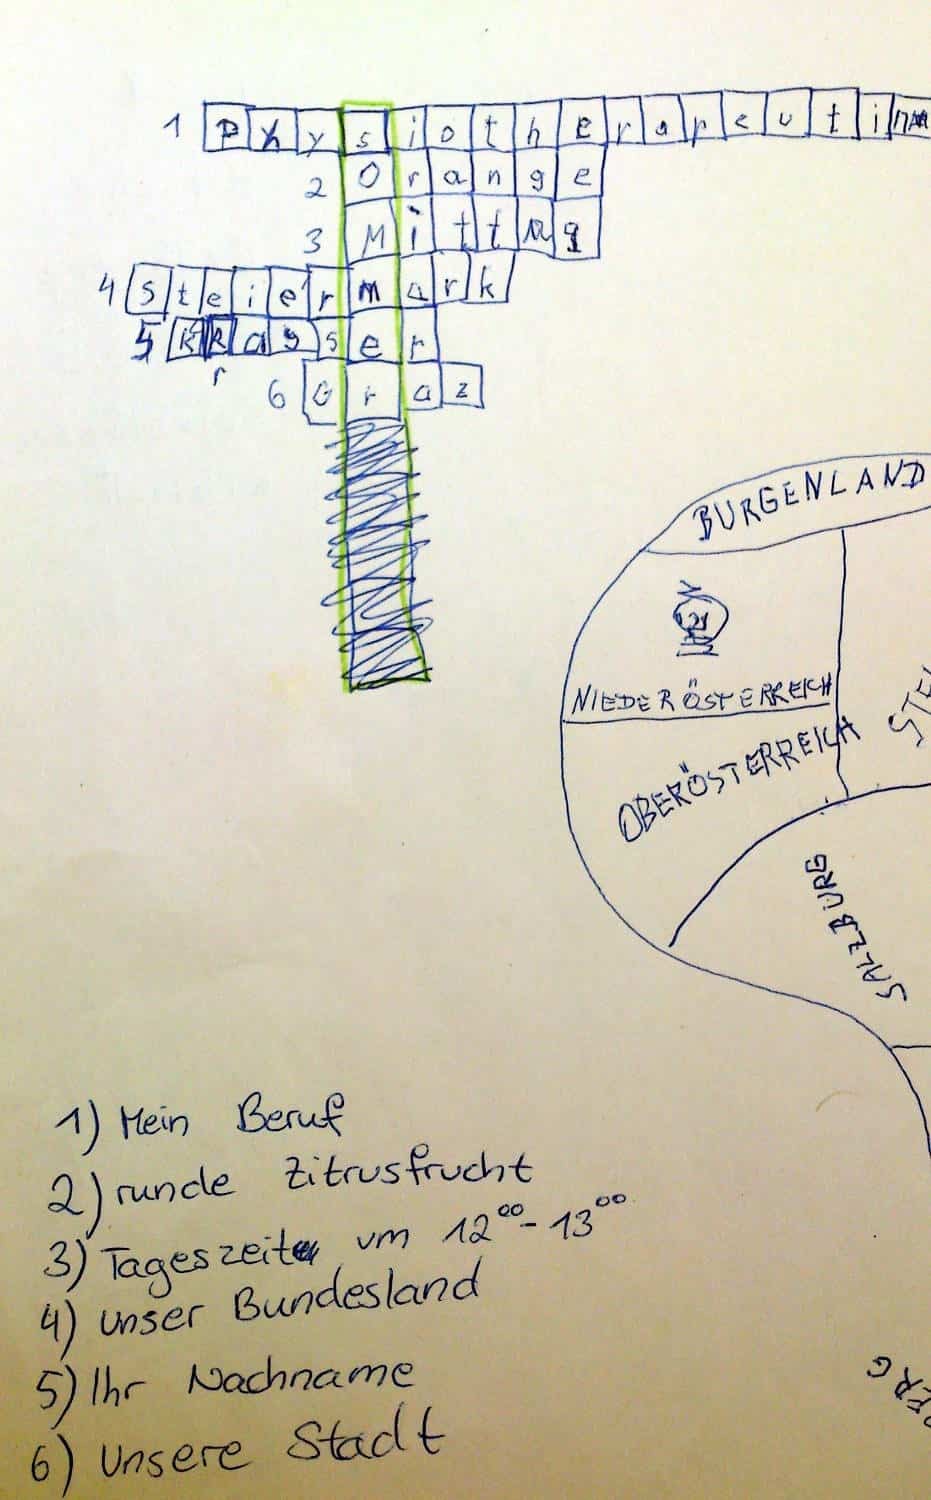 1 Physiotherapeutin
2 Orange
3 Mittag
4 Steiermark
5 ser
r
6 Graz
BURGENLAND
NIEDERÖSTERREICH
OBERÖSTERREICH
STE
SALZBURG
BERG
1) Mein Beruf
2) runde Zitrusfrucht
3) Tageszeit um 12⁰⁰-13⁰⁰
4) unser Bundesland
5) Ihr Nachname
6) Unsere Stadt